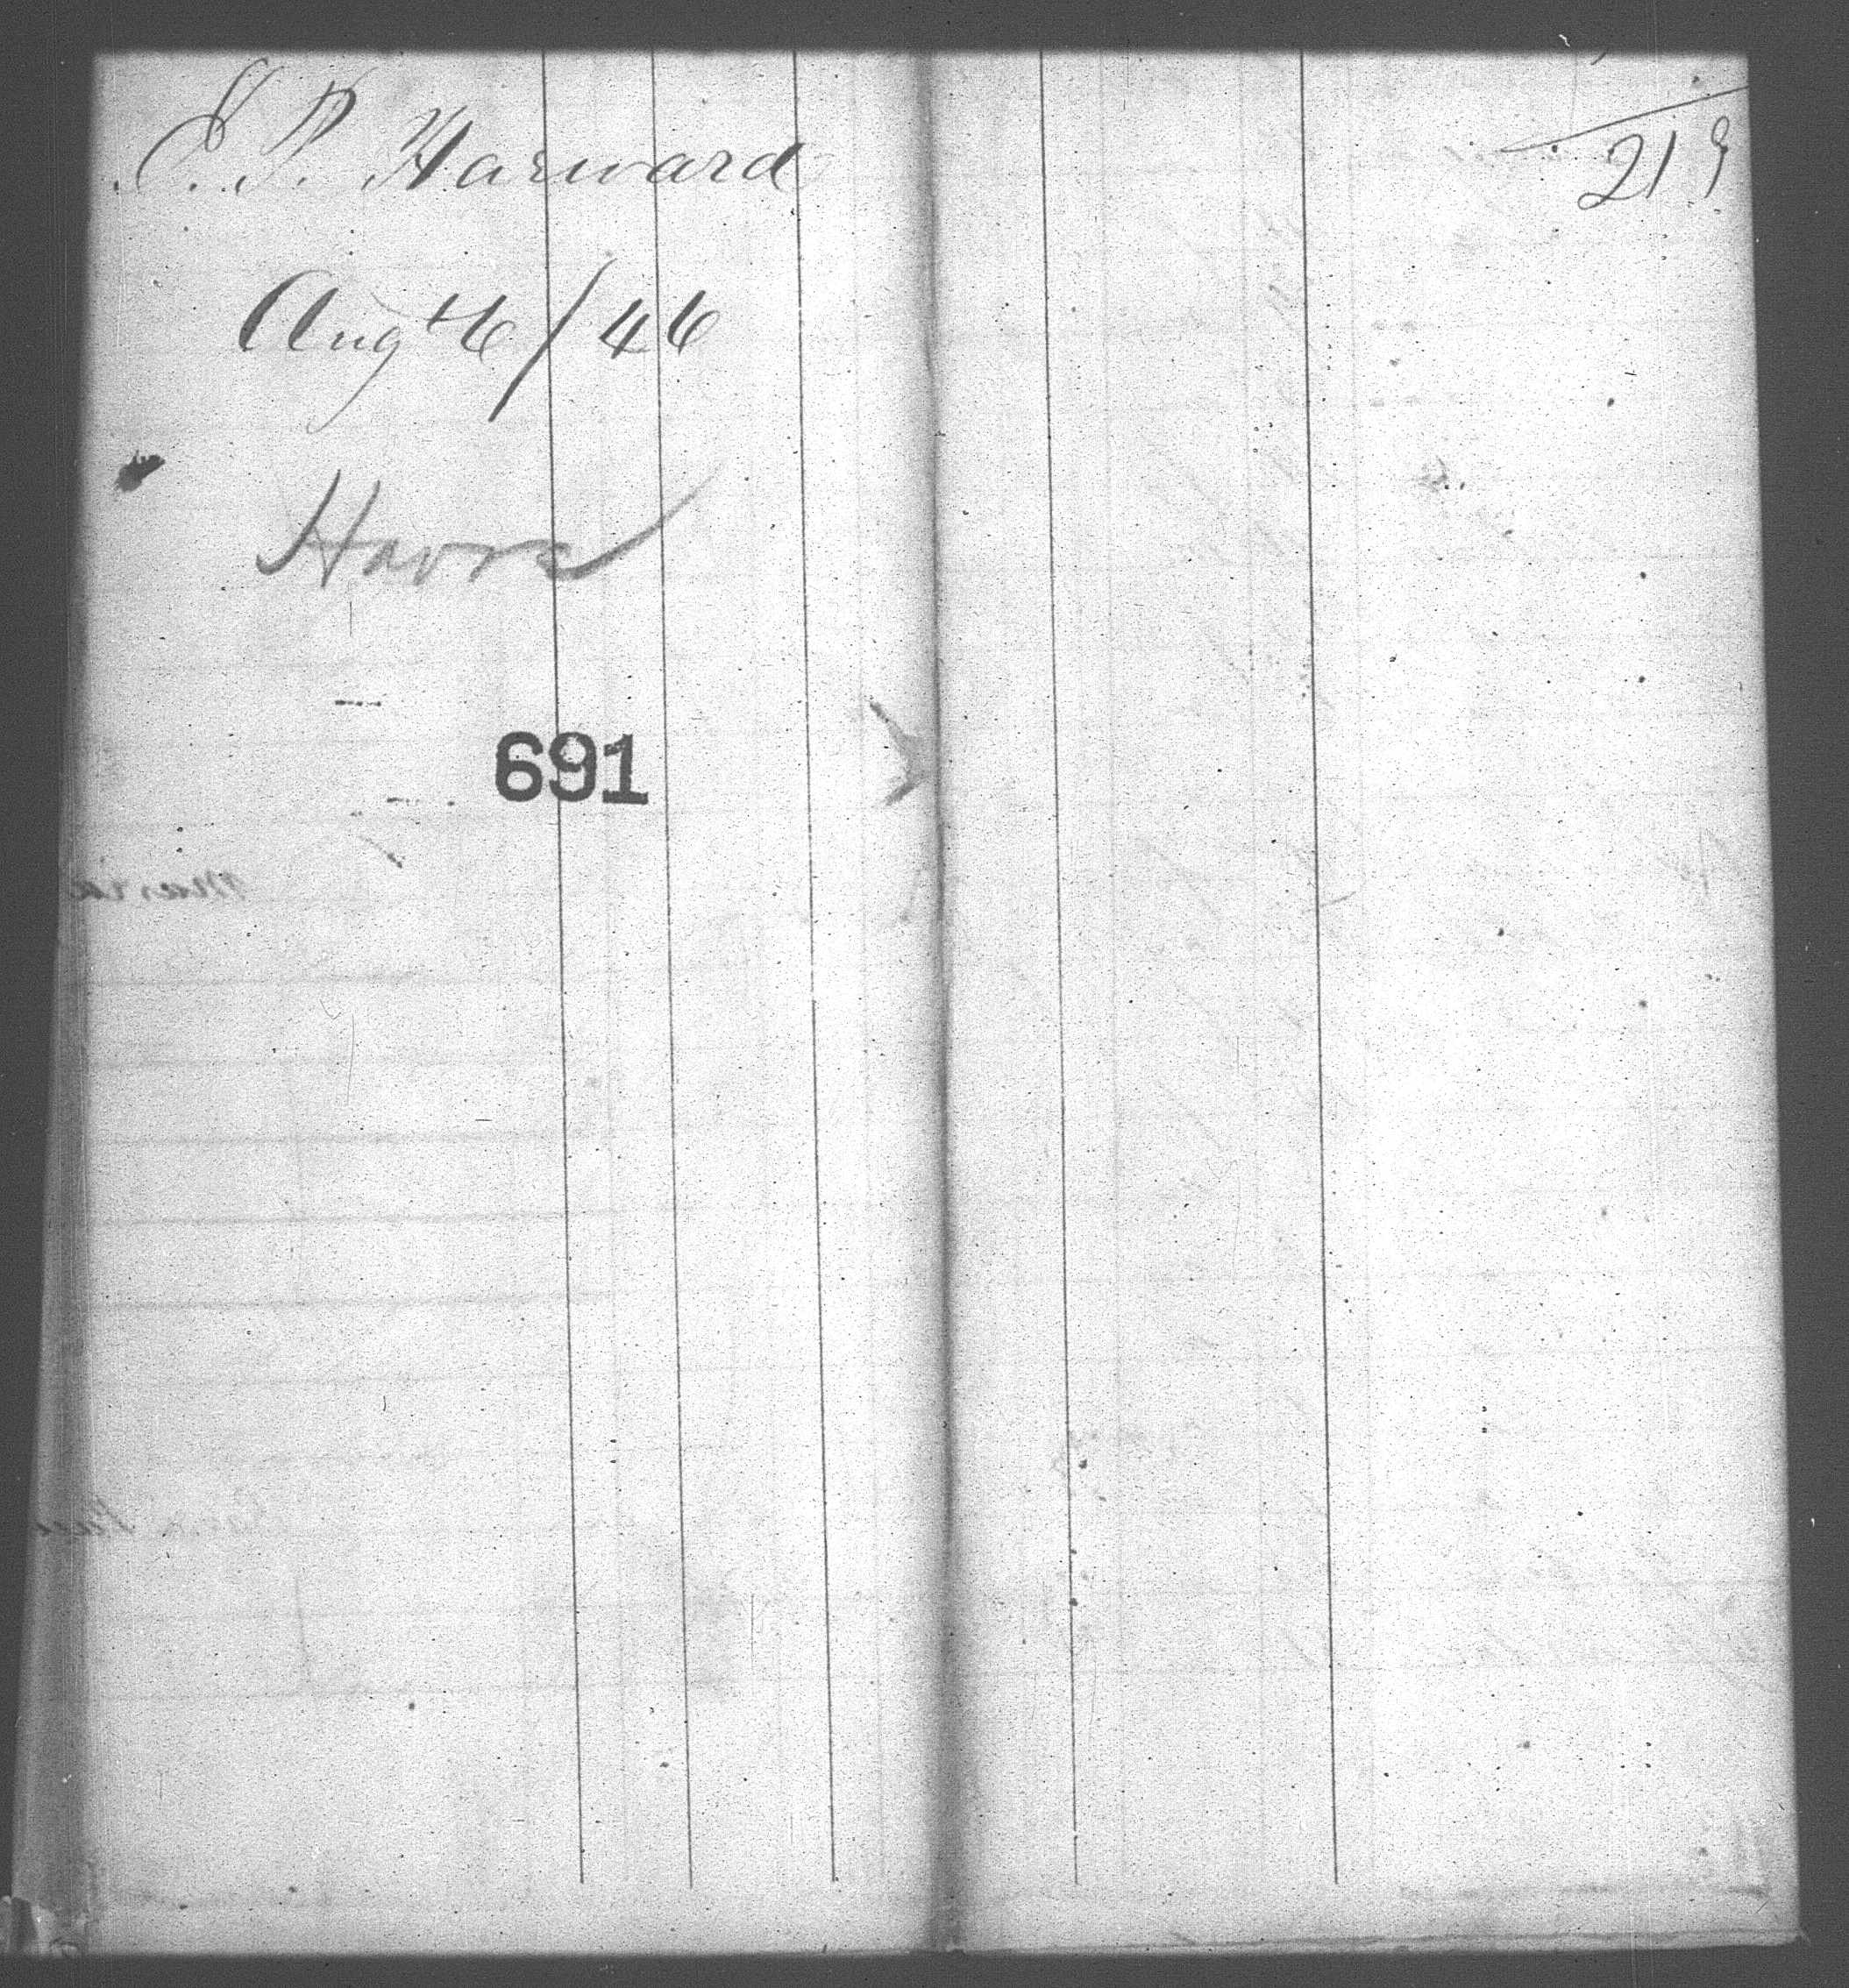 S. P. Harward
Aug 6/46
Havre
691
219